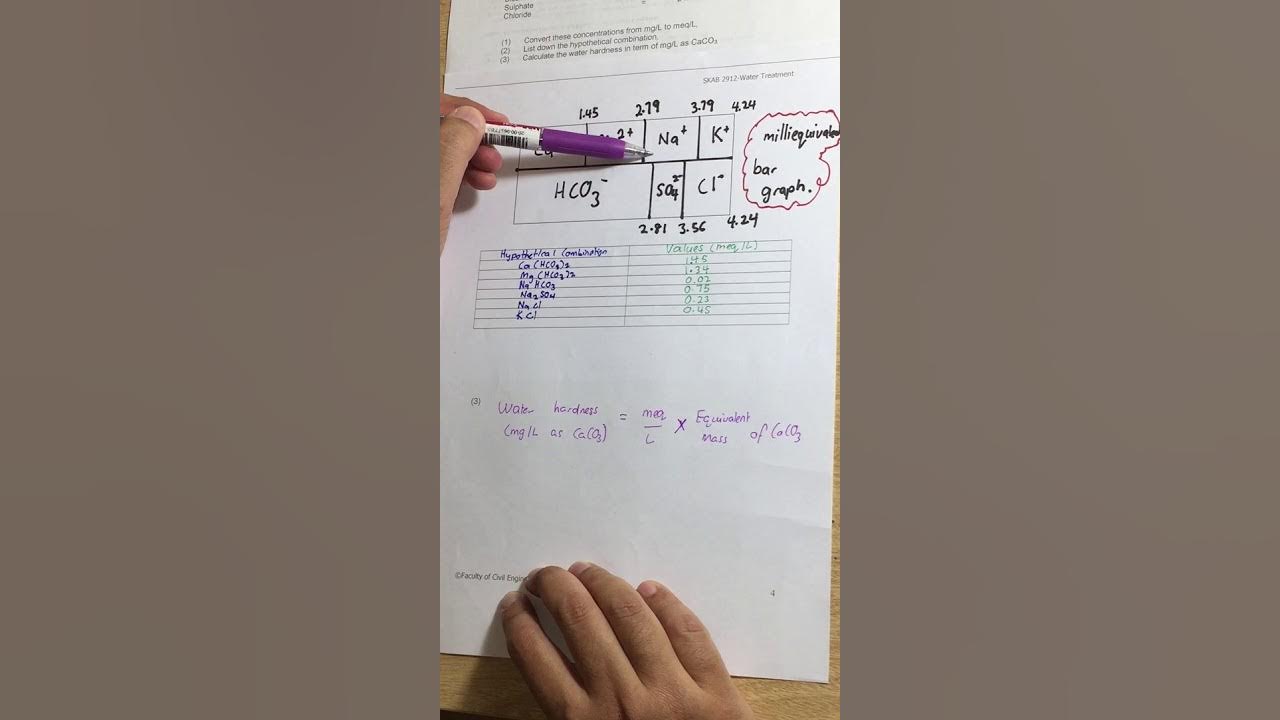 Sulphate =
Chloride
(1) Convert these concentrations from mg/L to meq/L,
(2) List down the hypothetical combination.
(3) Calculate the water hardness in term of mg/L as CaCO3
SKAB 2912-Water Treatment
1.45 2.79 3.79 4.24
Ca 2+ Na+ K+
HCO3- SO4 2- Cl-
2.81 3.56 4.24
milliequivalen
bar
graph.
Hypothetical Combination Values (meq/L)
Ca(HCO3)2 1.45
Mg(HCO3)2 1.34
NaHCO3 0.02
Na2SO4 0.75
NaCl 0.23
KCl 0.45
(3) Water hardness = meq × Equivalent
(mg/L as CaCO3) L Mass of CaCO3
©Faculty of Civil Engine
4